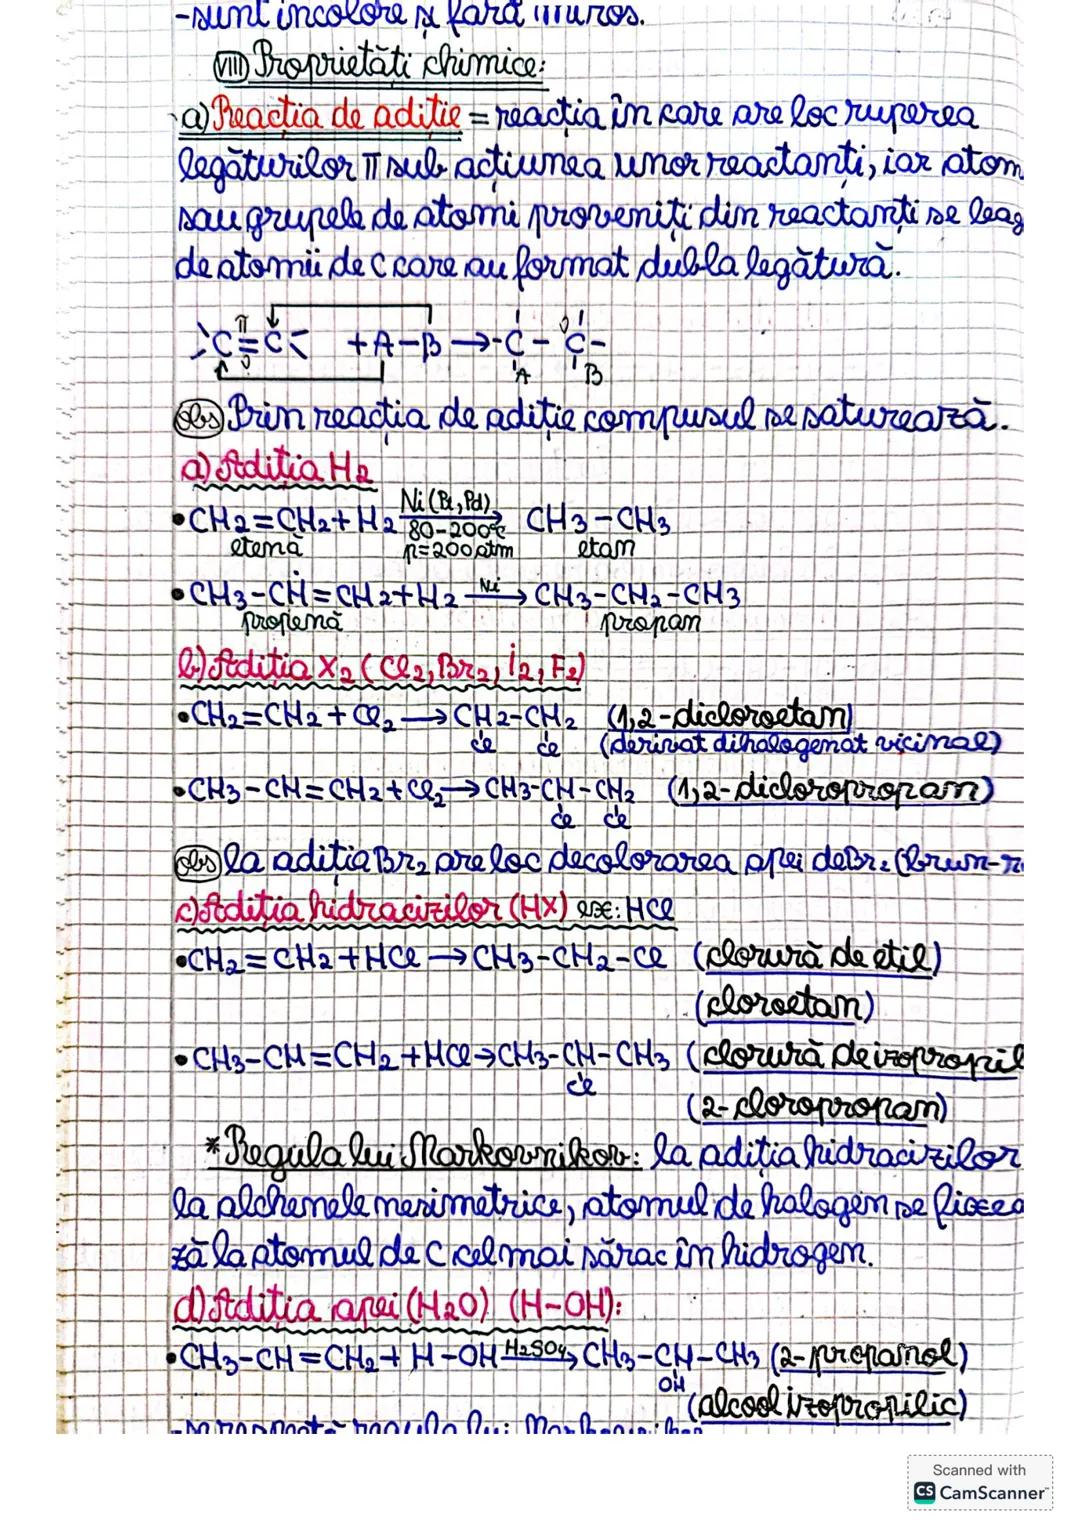 -sunt incolore și fără miros.
VIII Proprietăți chimice:
a) Reacția de adiție = reacția în care are loc ruperea
legăturilor π sub acțiunea unor reactanți, iar atom
sau grupele de atomi proveniți din reactanți se leag
de atomii de C care au format dubla legătură.
π
C = C + A-B → -C - C-
A B
obs Prin reacția de adiție compusul se saturează.
a) Adiția H2
Ni (Pt, Pd)
• CH2=CH2 + H2 → CH3-CH3
80-200°C
etenă p=200 atm etan
• CH3-CH=CH2+H2 Ni→ CH3-CH2-CH3
propenă propan
b) Adiția X2 (Cl2, Br2, I2, F2)
• CH2=CH2 + Cl2 → CH2-CH2 (1,2-dicloroetan)
Cl Cl (derivat dihalogenat vicinal)
• CH3-CH=CH2+Cl2 → CH3-CH-CH2 (1,2-dicloropropan)
Cl Cl
obs la adiția Br2 are loc decolorarea apei de Br2 (brun-r
c) Adiția hidracizilor (HX) ex: HCl
• CH2=CH2+HCl → CH3-CH2-Cl (clorură de etil)
(cloroetan)
• CH3-CH=CH2+HCl → CH3-CH-CH3 (clorură de izopropil
Cl
(2-cloropropan)
* Regula lui Markovnikov: la adiția hidracizilor
la alchenele nesimetrice, atomul de halogen se fixea
ză la atomul de C cel mai sărac în hidrogen.
d) Adiția apei (H2O) (H-OH):
• CH3-CH=CH2+H-OH H2SO4→ CH3-CH-CH3 (2-propanol)
OH
(alcool izopropilic)
regula lui Markovnikov
Scanned with
CS CamScanner